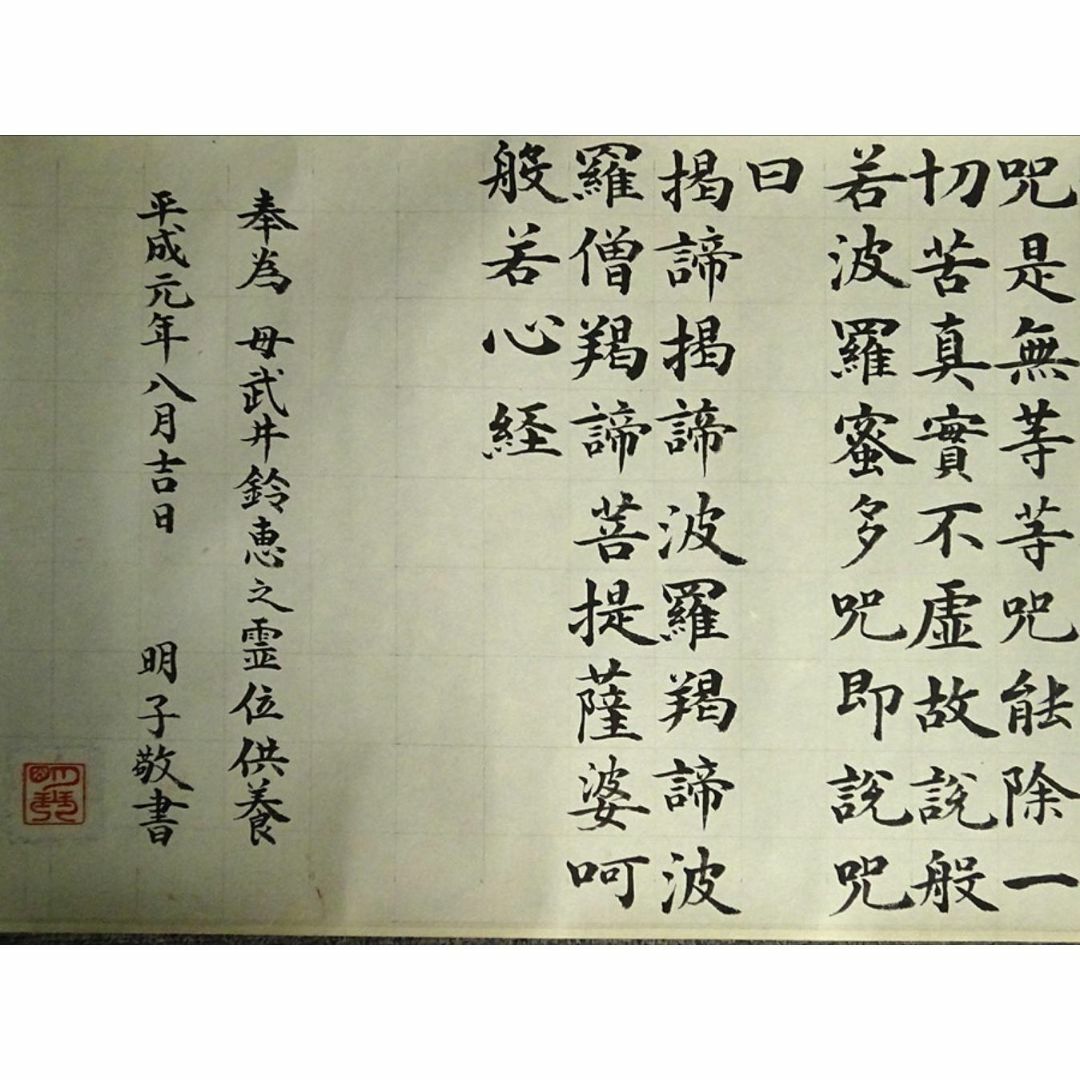 咒是無等等咒能除一
切苦真實不虛故說般
若波羅蜜多咒即說咒
曰
揭諦揭諦波羅羯諦波
羅僧羯諦菩提薩婆呵
般若心経
奉為 母武井鈴恵之霊位供養
平成元年八月吉日 明子敬書